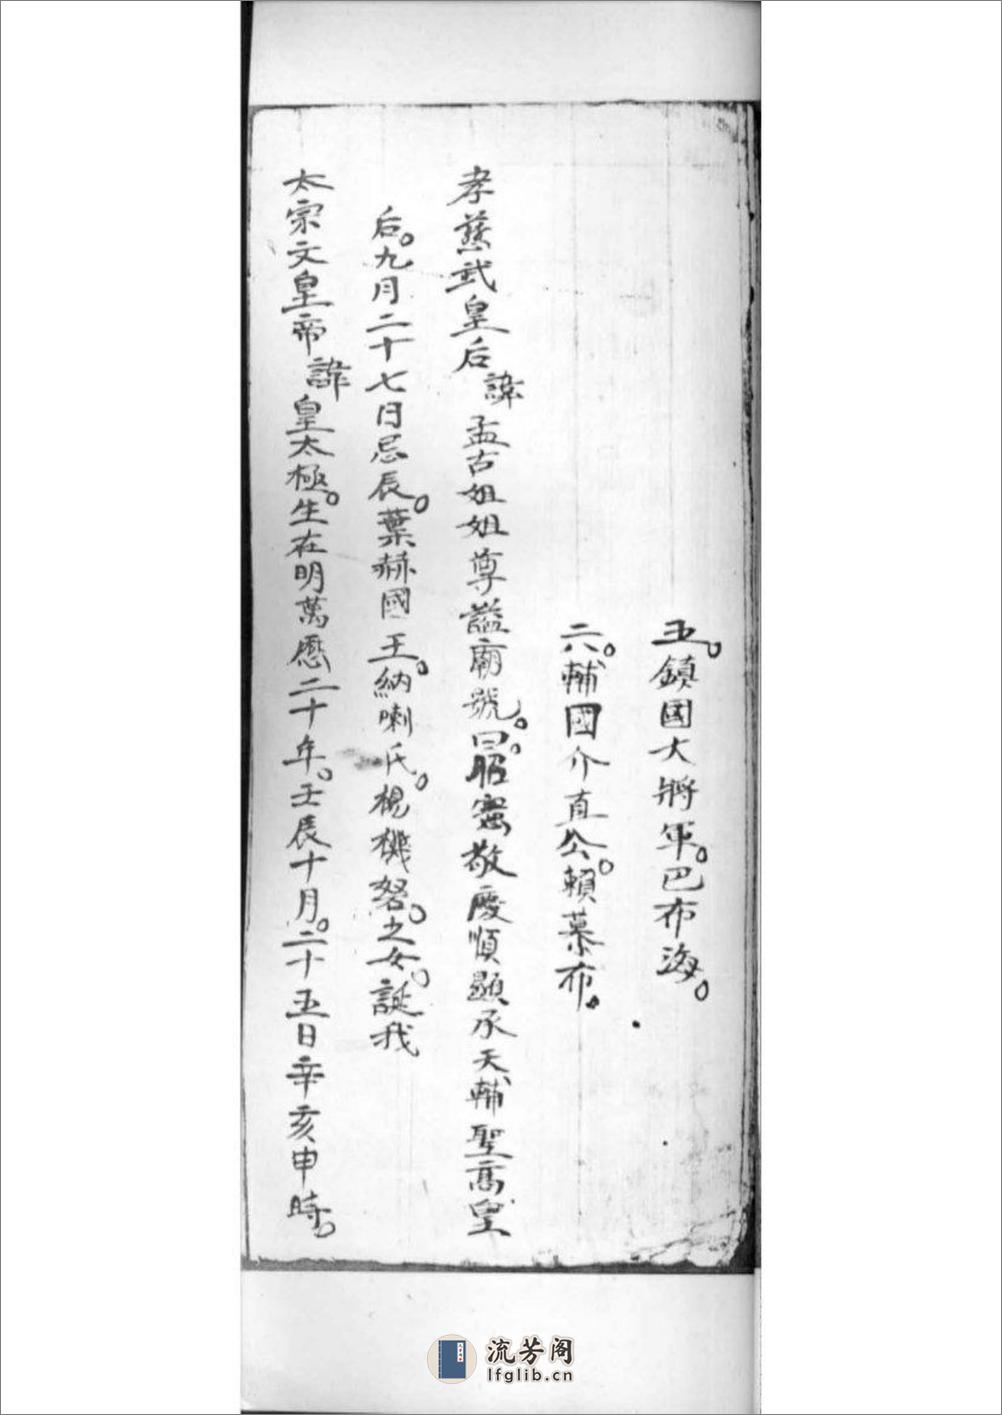 五。鎮國大將軍。巴布海。
六。輔國介直公。賴慕布。
孝慈武皇后諱孟古姐姐尊謚廟號。曰。昭憲敬慶順顯承天輔聖高皇
后。九月二十七日忌辰。葉赫國王。納喇氏。楊機努。之女。誕我
太宗文皇帝諱皇太極。生在明萬曆二十年。壬辰十月。二十五日辛亥申時。
流芳阁
lfglib.cn